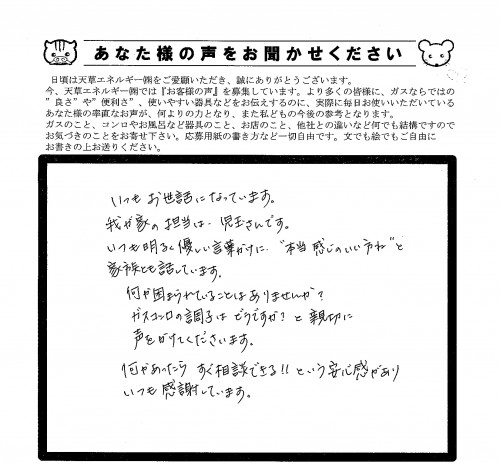 あなた様の声をお聞かせください
日頃は天草エネルギー㈱をご愛顧いただき、誠にありがとうございます。
今、天草エネルギー㈱では『お客様の声』を募集しています。より多くの皆様に、ガスならではの
"良さ"や"便利さ"、使いやすい器具などをお伝えするのに、実際に毎日お使いいただいている
あなた様の率直なお声が、何よりの力となり、また私どもの今後の参考となります。
ガスのこと、コンロやお風呂など器具のこと、お店のこと、他社との違いなど何でも結構ですので
お気づきのことをお寄せ下さい。応募用紙の書き方など一切自由です。文でも絵でもご自由に
お書きの上お送りください。
いつもお世話になっています。
我が家の担当は、児玉さんです。
いつも明るく優しい言葉がけに、"本当感じのいい方ね"と
家族とも話しています。
何か困まられていることはありませんか?
ガスコンロの調子はどうですか?と親切に
声をかけてくださいます。
何かあったらすぐ相談できる!!という安心感があり
いつも感謝しています。